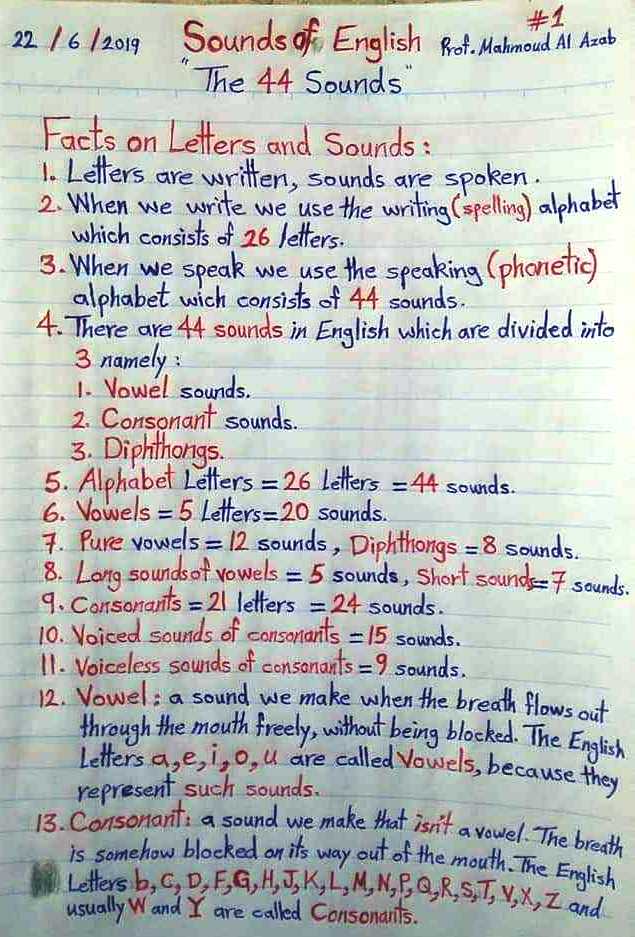 #1
22 / 6 / 2019 Sounds of English Prof. Mahmoud Al Azab
"The 44 Sounds"
Facts on Letters and Sounds :
1. Letters are written, sounds are spoken.
2. When we write we use the writing (spelling) alphabet
which consists of 26 letters.
3. When we speak we use the speaking (phonetic)
alphabet wich consists of 44 sounds.
4. There are 44 sounds in English which are divided into
3 namely :
1. Vowel sounds.
2. Consonant sounds.
3. Diphthongs.
5. Alphabet Letters = 26 Letters = 44 sounds.
6. Vowels = 5 Letters = 20 sounds.
7. Pure vowels = 12 sounds, Diphthongs = 8 sounds.
8. Long sounds of vowels = 5 sounds, Short sounds = 7 sounds.
9. Consonants = 21 letters = 24 sounds.
10. Voiced sounds of consonants = 15 sounds.
11. Voiceless sounds of consonants = 9 sounds.
12. Vowel : a sound we make when the breath flows out
through the mouth freely, without being blocked. The English
Letters a, e, i, o, u are called Vowels, because they
represent such sounds.
13. Consonant : a sound we make that isn't a vowel. The breath
is somehow blocked on its way out of the mouth. The English
Letters b, C, D, F, G, H, J, K, L, M, N, P, Q, R, S, T, V, X, Z and
usually W and Y are called Consonants.